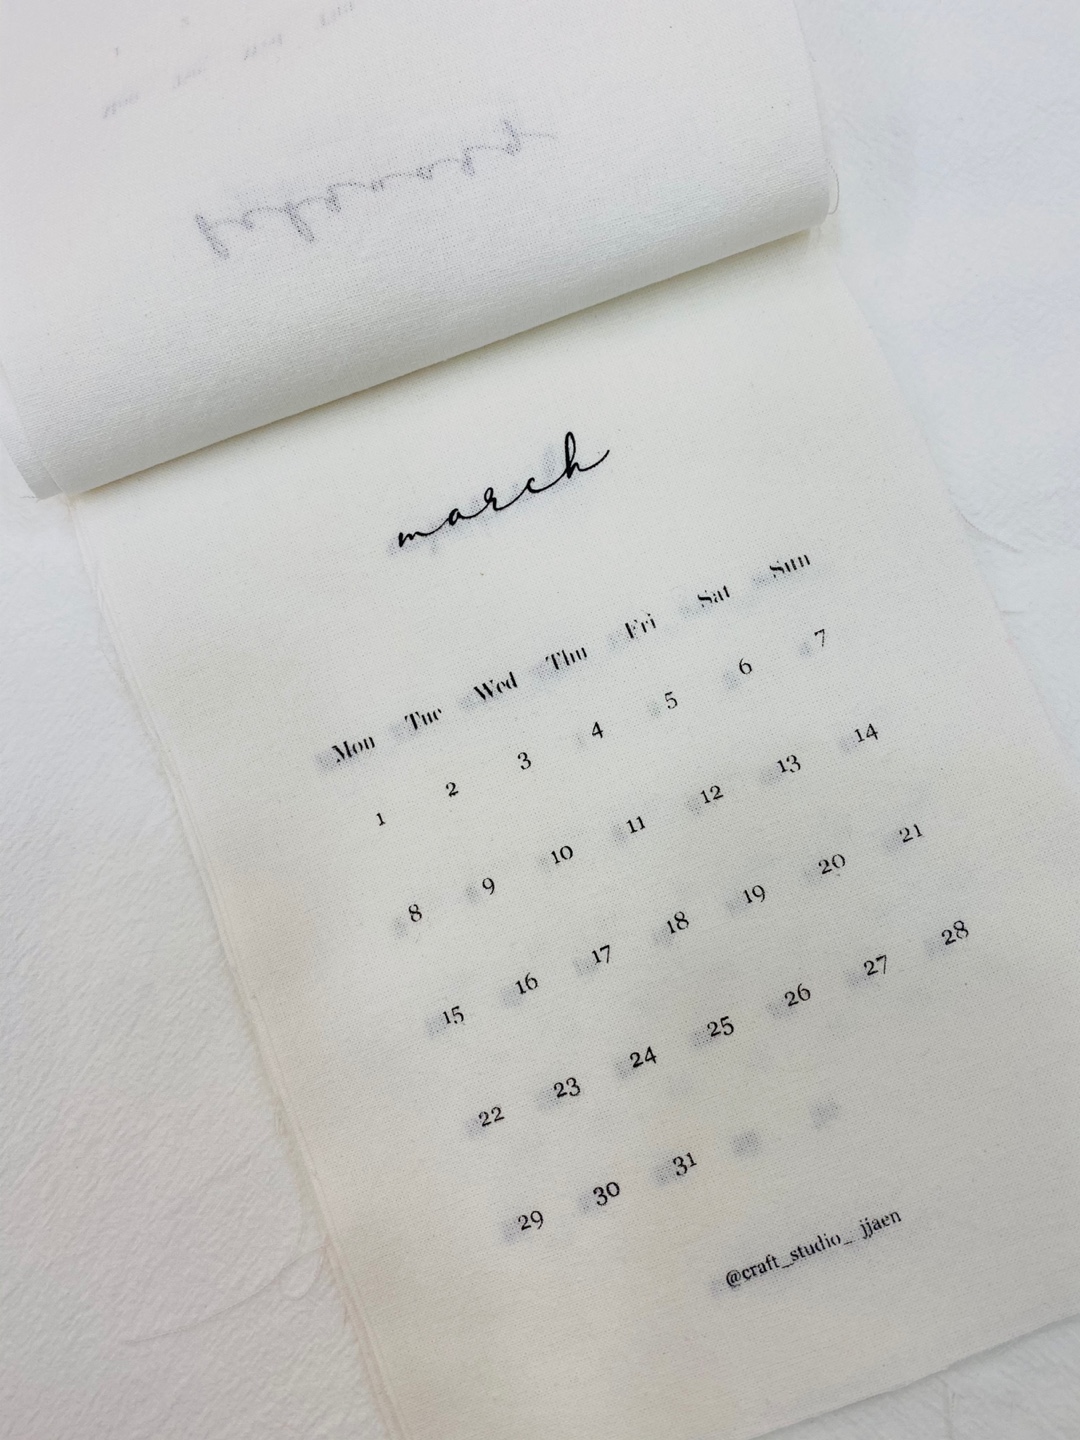 march
Mon Tue Wed Thu Fri Sat Sun
1 2 3 4 5 6 7
8 9 10 11 12 13 14
15 16 17 18 19 20 21
22 23 24 25 26 27 28
29 30 31
@craft_studio_jjaen